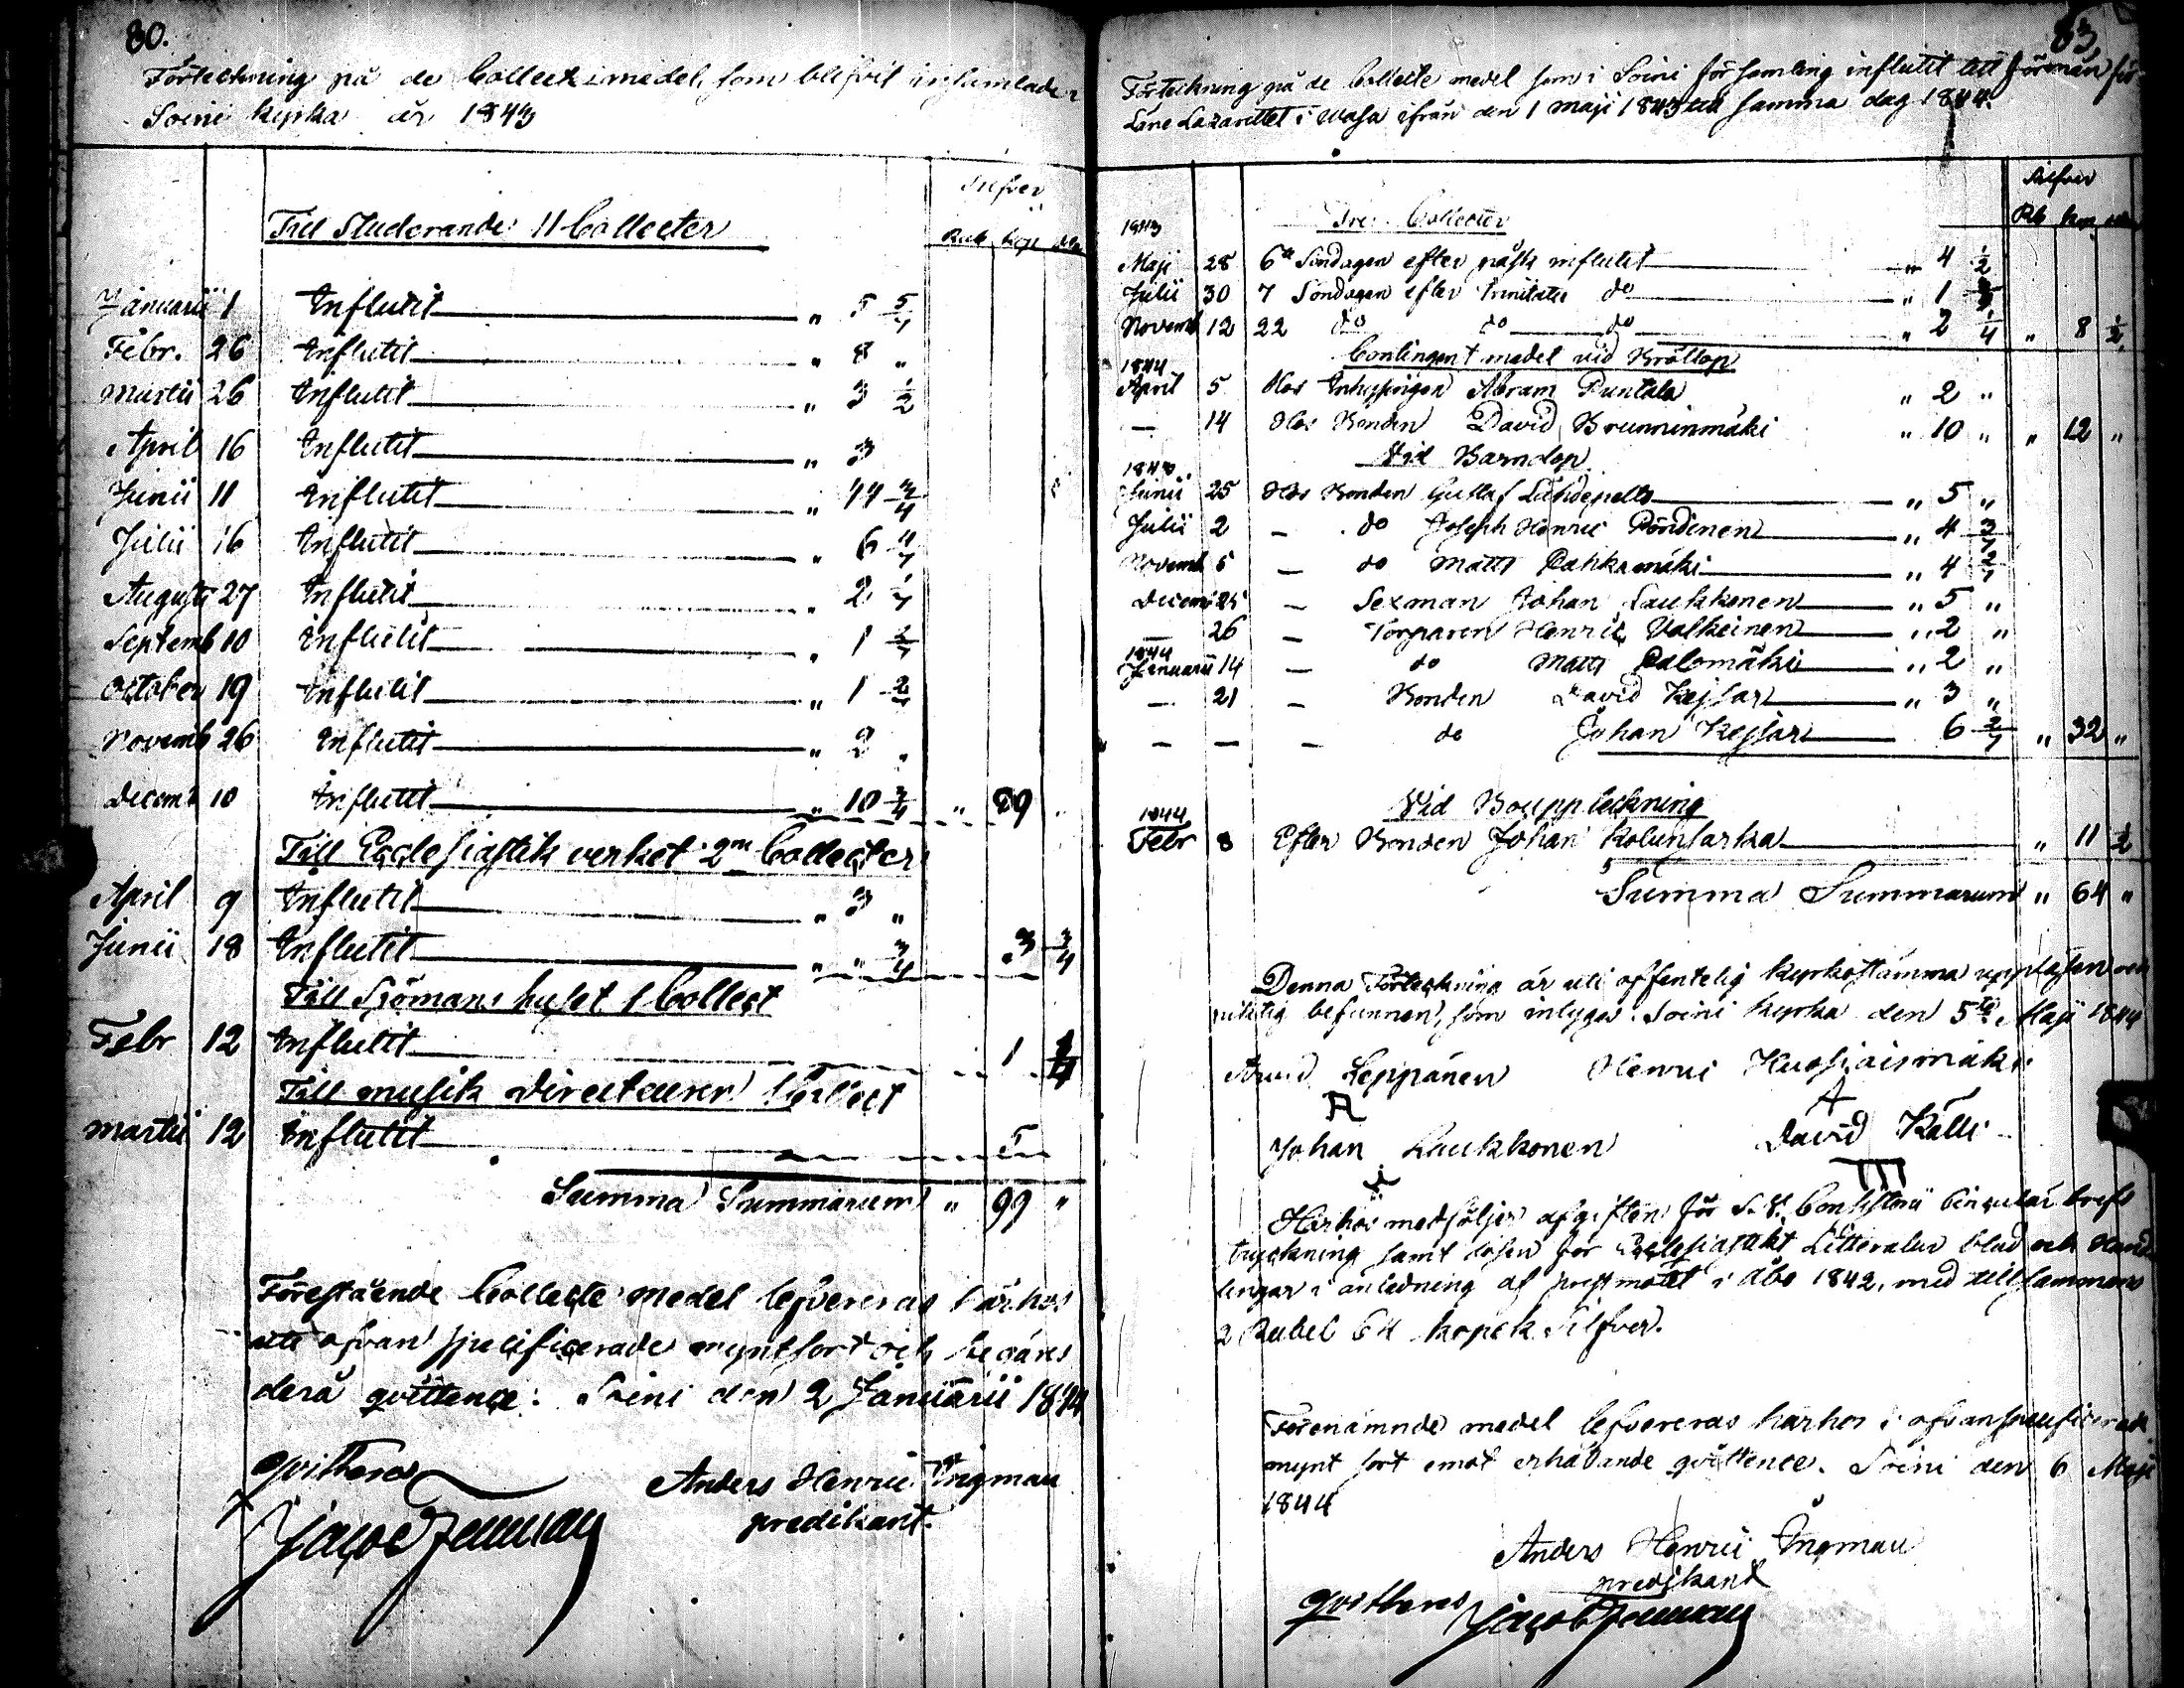 80.
Förteckning på de Collectmedel, som blifvit insamlade i
Soini kyrka år 1843
Silfver
Till Studerande 11 Collecter
Rub kop
Januarii 1 Influtit " 5 5/7
Febr. 26 Influtit " 8 "
Martii 26 Influtit " 3 1/2
April 16 Influtit " 3
Junii 11 Influtit " 44 3/4
Julii 16 Influtit " 6
Augusti 27 Influtit " 2 1/7
Septemb 10 Influtit " 1 2/7
October 19 Influtit " 1 2/7
Novemb 26 Influtit " 2 "
Decemb 10 Influtit " 10 3/4 " 89 "
Till Ecclesiastik verket 2ne Collecter
April 9 Influtit " 3 "
Junii 18 Influtit " " 3/4 " 3 3/4
Till Sjömans huset 1 Collect
Febr 12 Influtit 1 1/4
Till musik Directeuren 1 Collect
Martii 12 Influtit 5
Summa Summarum " 99 "
Förestående Collecte medel lefvereras härhos
uti ofvan specificerade myntsort och begäres
derå qvittence. Soini den 2 Januarii 1844
qvitteras Anders Henric Ingman
predikant.
Jacob
83
Förteckning på de Collecte medel som i Soini församling influtit till förmån för
Läne Lazarettet i Wasa ifrån den 1 Maji 1843 till samma dag 1844.
Silfver
1843 Tre Collecter Rub kop
Maji 28 6te Söndagen efter påsk influtit " 4 1/2
Julii 30 7 Söndagen efter Trinitatis do " 1
Novemb 12 22 do do do " 2 1/4 " 8 1/2
Contingent medel vid Bröllop
1844
April 5 Hos Inhysingen Abram Puntala " 2 "
— 14 Hos Bonden David Brunninmäki " 10 " " 12 "
Vid Barndop
1843
Junii 25 Hos Bonden Gustaf Lähdepelto " 5 "
Julii 2 - do Joseph Henric Pöndinen " 4 3/7
Novemb 5 — do Matts Pahkamäki " 4 2/7
Decemb 25 - Sexman Johan Laukkonen " 5 "
— 26 - Torparen Henric Valkeinen " 2 "
1844
Januarii 14 — do Matts Palomäki " 2 "
— 21 - Bonden David Kejsar " 3 "
— — - do Johan Kejsar 6 2/7 " 32 "
Vid Bouppteckning
1844
Febr 8 Efter Bonden Johan Kolunsarka " 11 1/2
Summa Summarum " 64 "
Denna Förteckning är uti offentelig kyrkostämma uppläsen och
riktig befunnen, som intygas. Soini kyrka den 5te Maji 1844
Leppänen Henric Huosiaismäki
Johan Laukkonen David Källi
Härhos medföljer afgiften för Consistorii Circulär brefs
tryckning samt lösen för Ecclesiastikt Litteratur blad och Hand-
lingar i anledning af prestmötet i Åbo 1842, med tillsammans
2 Rubel 64 kopek Silfver.
Förenämnde medel lefvereras härhos i ofvanspecificerade
mynt sort emot erhållande qvittence. Soini den 6 Maji
1844
Anders Henric Ingman
predikant
qvitteras Jacob